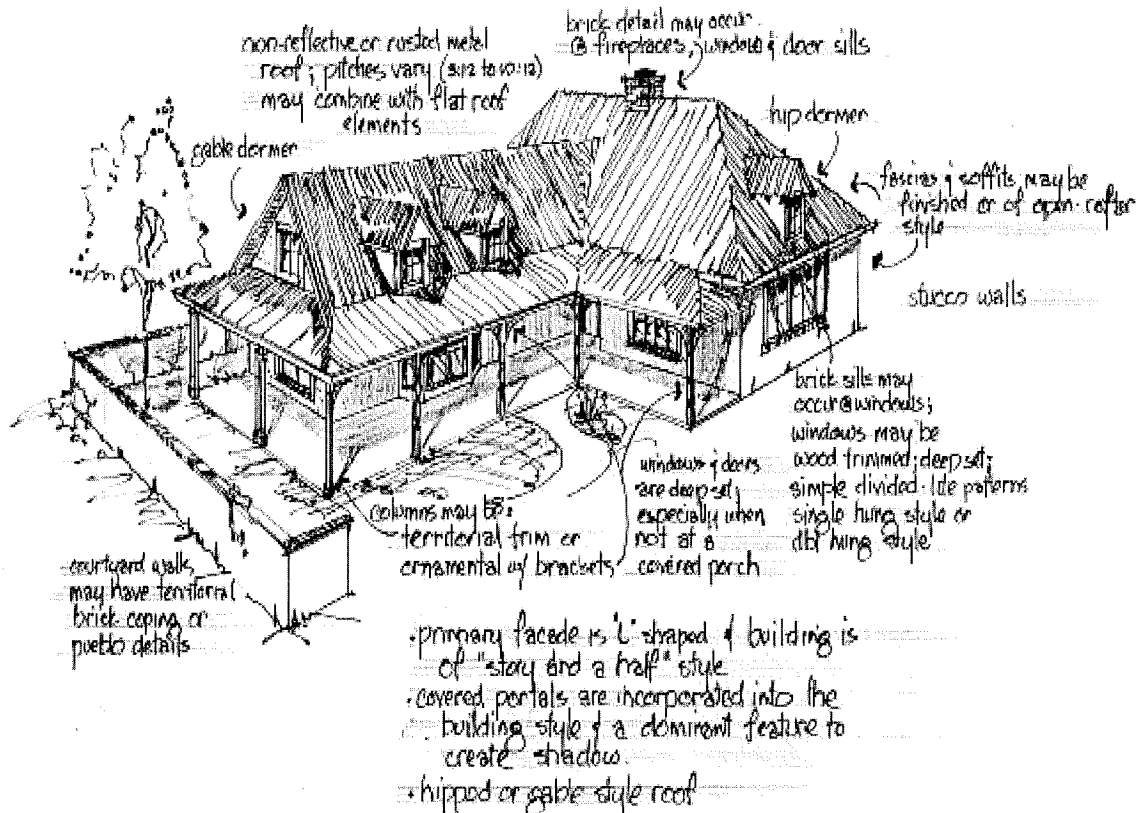 brick detail may occur
@ fireplaces, window & door sills
non-reflective or rusted metal
roof; pitches vary (3:12 to 10:12)
may combine with flat roof
elements
hip dormer
gable dormer
fascias & soffits may be
finished or of open-rafter
style
stucco walls
brick sills may
occur @ windows;
windows may be
wood trimmed; deep set;
simple divided-lite patterns
single hung style or
dbl hung style
windows & doors
are deep set,
especially when
not at a
covered porch
columns may be:
territorial trim or
ornamental w/ brackets
courtyard walls
may have territorial
brick coping or
pueblo details
• primary facade is "L" shaped & building is
of "story and a half" style
• covered portals are incorporated into the
building style & a dominant feature to
create shadow
• hipped or gable style roof